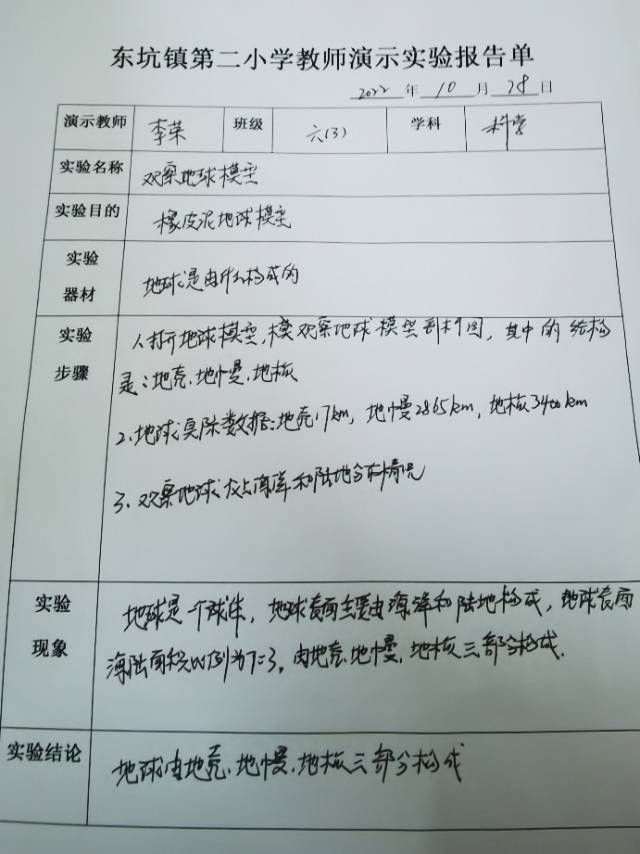 东坑镇第二小学教师演示实验报告单
2022 年 10 月 28 日
演示教师 李荣 班级 六(3) 学科 科学
实验名称 观察地球模型
实验目的 橡皮泥地球模型
实验器材 地球是由什么构成的
实验步骤
1、打开地球模型，观察地球模型剖面图，其中的结构
是：地壳、地幔、地核
2、地球实际数据：地壳17km，地幔2865km，地核3400km
3、观察地球仪上海洋和陆地分布情况
实验现象
地球是一个球体，地球表面主要由海洋和陆地构成，地球表面
海陆面积比例为7:3，由地壳、地幔、地核三部分构成.
实验结论 地球由地壳、地幔、地核三部分构成